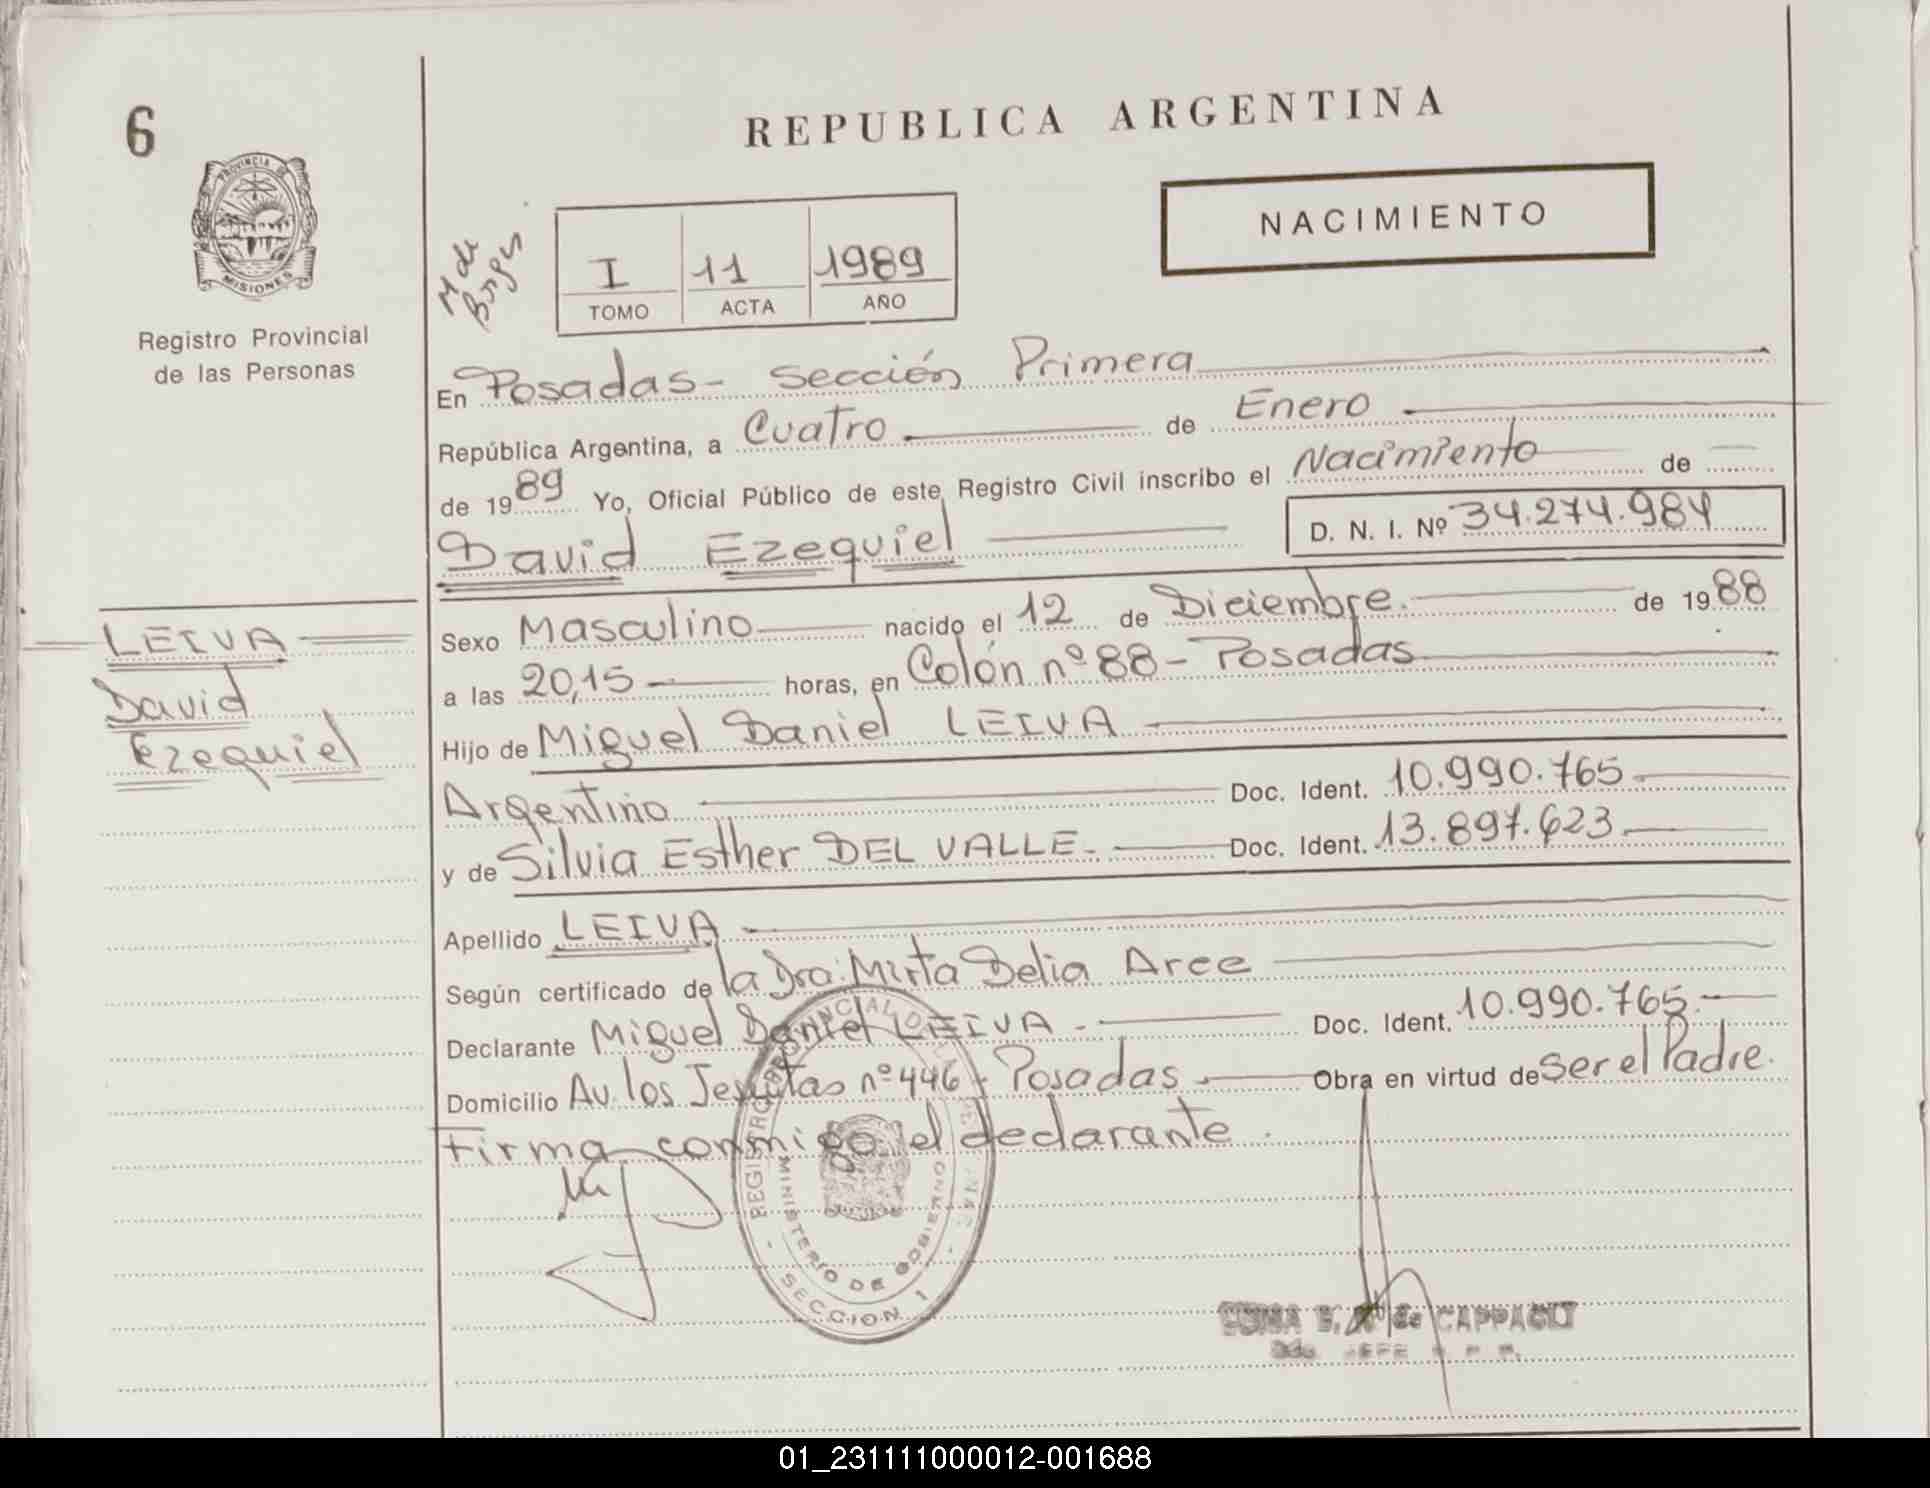 6
REPUBLICA ARGENTINA
PROVINCIA DE
MISIONES
Registro Provincial
de las Personas
NACIMIENTO
M de
I 11 1989
TOMO ACTA AÑO
En Posadas - Sección Primera
República Argentina, a Cuatro de Enero
de 1989 Yo, Oficial Público de este Registro Civil inscribo el Nacimiento de
David Ezequiel D. N. I. Nº 34.274.984
LEIVA
David
Ezequiel
Sexo Masculino nacido el 12 de Diciembre. de 1988
a las 20,15 horas, en Colón nº 88 - Posadas
Hijo de Miguel Daniel LEIVA
Argentino Doc. Ident. 10.990.765
y de Silvia Esther DEL VALLE. Doc. Ident. 13.897.623
Apellido LEIVA
Según certificado de la Dra: Mirta Delia Arce
Declarante Miguel Daniel LEIVA. Doc. Ident. 10.990.765.
Domicilio Av. los Jesuitas nº 446 - Posadas Obra en virtud de Ser el Padre.
Firma conmigo el declarante.
REGISTRO PROVINCIAL DE LAS PERSONAS
MINISTERIO DE GOBIERNO
SECCION 1
de CAPPAGLI
JEFE
01_231111000012-001688